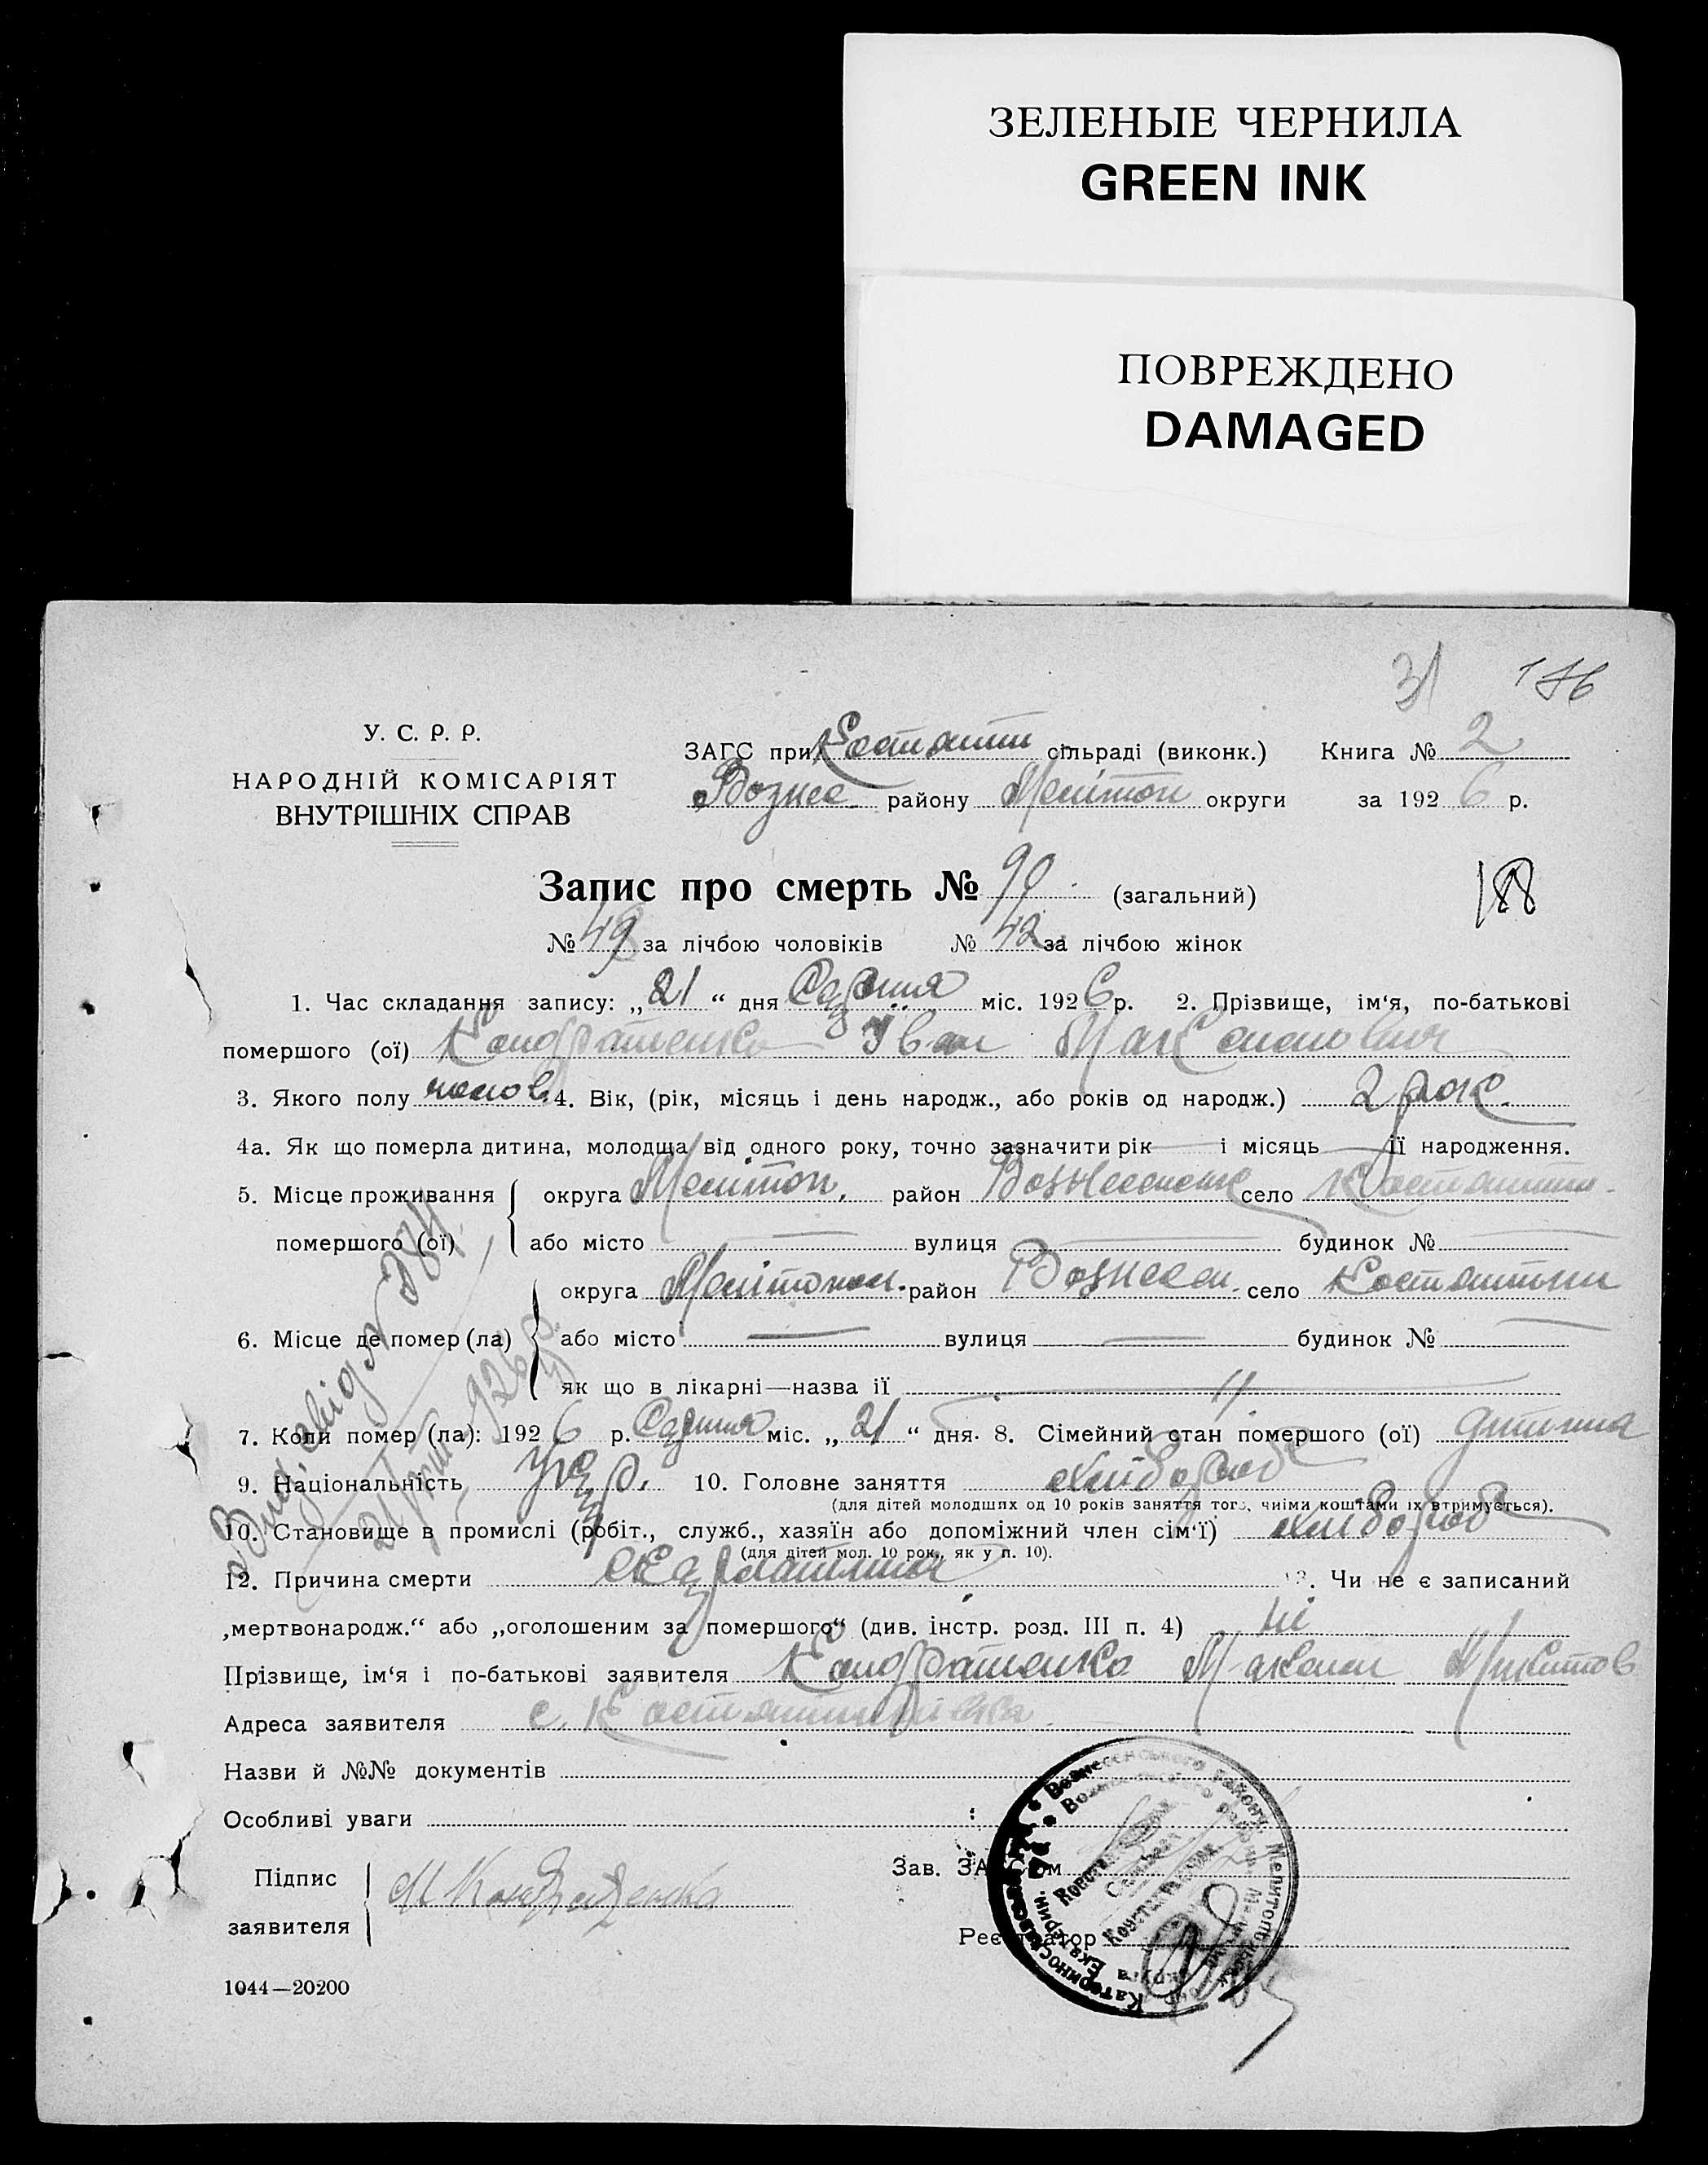 ЗЕЛЕНЫЕ ЧЕРНИЛА
GREEN INK
ПОВРЕЖДЕНО
DAMAGED
31 186
У. С. Р. Р.
НАРОДНІЙ КОМІСАРІЯТ
ВНУТРІШНІХ СПРАВ
ЗАГС при Костянти сільраді (виконк.) Книга № 2
Вознес. району Мелітоп округи за 1926 р.
Запис про смерть № 90 (загальний)
188
№ 49 за лічбою чоловіків № 42 за лічбою жінок
1. Час складання запису: „21“ дня Серпня міс. 1926 р. 2. Прізвище, ім'я, по-батькові
помершого (ої) Кондратенко Іван Максимович
3. Якого полу чолов. 4. Вік, (рік, місяць і день народж., або років од народж.) 2 рок.
4а. Як що померла дитина, молодща від одного року, точно зазначити рік — і місяць — її народження.
5. Місце проживання округа Мелітоп. район Вознесенськ село Костянти.
помершого (ої) або місто — вулиця — будинок № —
округа Мелітопол. район Вознесен. село Костянтин
6. Місце де помер (ла) або місто — вулиця — будинок № —
як що в лікарні—назва її —
7. Коли помер (ла): 1926 р. Серпня міс. „21“ дня. 8. Сімейний стан помершого (ої) дитина
9. Національність Укр. 10. Головне заняття хлібороб
(для дітей молодших од 10 років заняття того, чиїми коштами їх втримується).
10. Становище в промислі (робіт., служб., хазяїн або допоміжний член сім'ї) хлібороб
(для дітей мол. 10 рок., як у п. 10).
12. Причина смерти скарлатина 13. Чи не є записаний
„мертвонародж.“ або „оголошеним за помершого“ (див. інстр. розд. III п. 4) ні
Прізвище, ім'я і по-батькові заявителя Кондратенко Максим Микитов
Адреса заявителя с. Костянтинівка
Назви й №№ документів
Особливі уваги
Підпис
заявителя М Кондратенко
Зав. ЗАГСом
Реєстратор
1044—20200